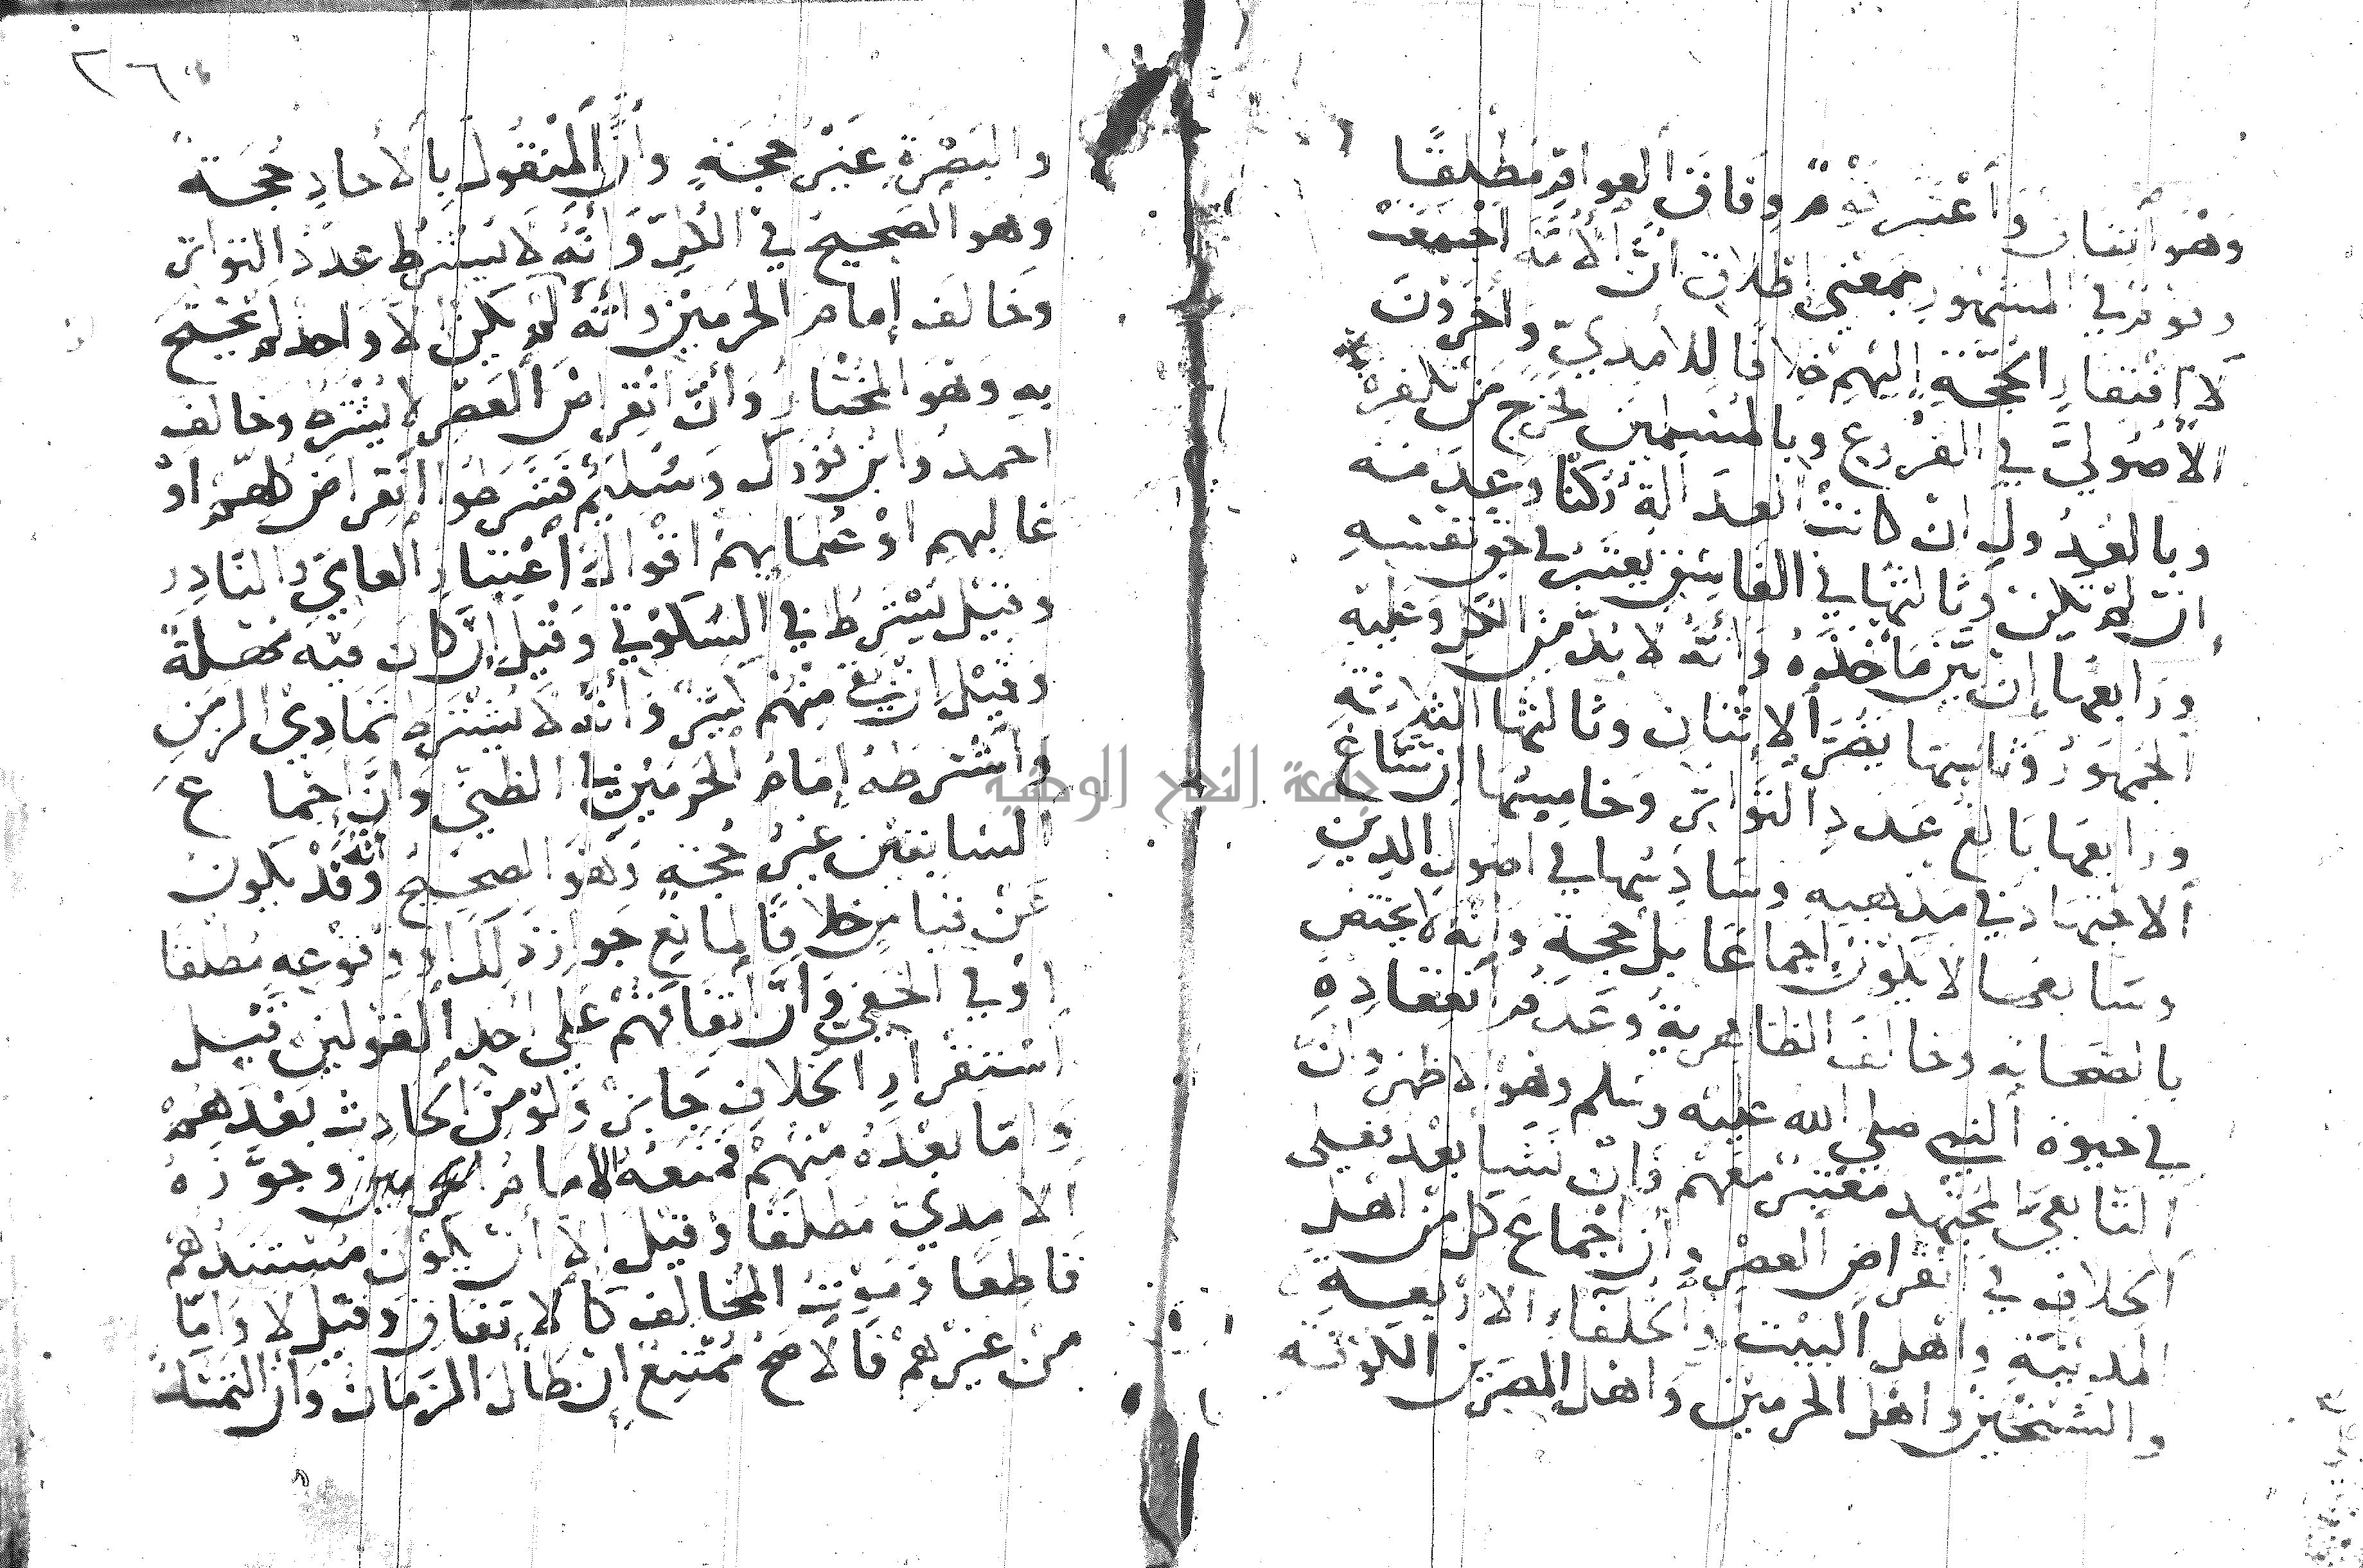 وَهُوَ اتفاق وَاعْتَبَر قَوْمٌ وِفَاقَ العوامّ مُطْلَقًا
وقوم في المشهور بمعنى إطلاق انَّ الأُمَّة اجتمعت
لَا افْتقارِ الحُجَّةِ إليهم خِلافًا للآمديّ وآخَرُونَ
الأُصُوليَّ في الفُرُوع وبالمُسْلِمينَ فخرج مَن نكفره
وبالعُدُولِ ان كانت العدالةُ رُكنًا وعدمه
إن لَمْ تكن وثالثها في الفاسق يُعتبَر في حق نفسه
ورابعُها إن بَيَّن مأخَذَهُ وأنّه لا بُدّ من الكل وعليه
الجمهورُ وثانيها يضرّ الاثنان وثالثها الثلاثة
ورابعها بالغ عَدد التواتر وخامسها إن ساغ
الاجتهاد في مذهبه وسادسُها في أصول الدين
وسابعها لا يكون إجماعًا بل حجة وانّه لا يختص
بالصحابة وخالف الظاهرية وعدم انعقاده
في حيوة النبي صلى الله عليه وسلم وهو الاظهر وانّ
التابعيَّ المجتهد معتبر معهم فإن نشأ بعد فعلى
الخلاف في انقراض العصر وأنّ اجماع كل من اهل
المدينة واهل البيت والخلفاء الاربعة
والشيخين واهل الحرمين واهل المصرين الكوفة
٢٦
والبَصْرةِ غيرُ حُجَّةٍ وأنَّ المنقولَ بالآحادِ حُجَّةٌ
وهو الصحيح في الكلّ وأنّه لا يُشترط عددُ التواتر
وخالف إمامُ الحَرمَيْن وانّه لو لم يكن إلا واحد لم يحتج
به وهو المختارُ وأنَّ انقراضَ العصر لا يشترط وخالف
احمدُ وابن فُورك وسُلَيْم فشرطوا انقراض كلهم أوْ
غالبهم اوْ علمائهم اقوالُ اعتبار العاميّ والنادر
وقيل يُشترط في السكوتي وقيل إن كان فيه مُهلةٌ
وقيل إن بقي منهم كثيرٌ وأنّه لا يُشترط تمادي الزمن
واشترطهُ إمامُ الحرمَيْن في الظنيّ وأنَّ اجماع
السابقين غيرُ حُجّةٍ وهو الصحيحُ وأنّه قَدْ يكون
عَنْ قياس خلافًا لمانع جواز ذلك أو وقوعه مُطلقًا
اوْ في الخفيّ وأنّ اتّفاقهم على احد القولين قبل
استقرارِ الخلافِ جائزٌ ولوْ من الحادِث بعدهمْ
وامّا بعْدهُ منهم فمنعه الإمامُ وجوَّزهُ
الآمديّ مطلقًا وقيل إلّا أن يكون مُسْتندُهم
قاطعًا وموتُ المخالف كالاتفاق وقيل لا وامّا
منْ غيْرهمْ فالاصحُّ ممتنِعٌ إن طال الزمان وأن التمسّك
جامعة النجاح الوطنية